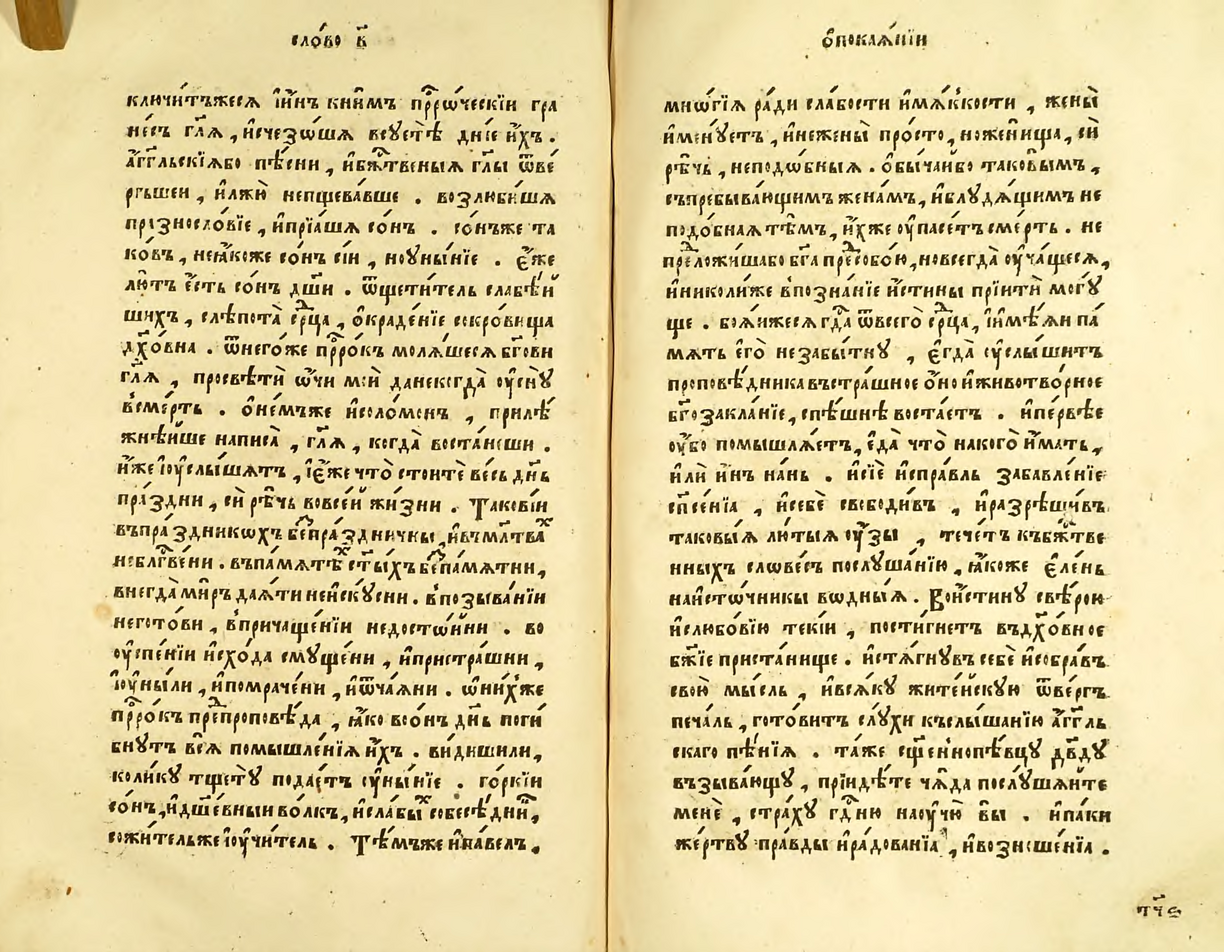 сло́во в҃
ключи́тъжеся і҆и҆нъ кни́мъ прⷪ҇рѡческїи гра
не́съ гл҃я , и҆счезѡ́шꙗ всꙋетѣ̀ дні́е и҆́хъ .
а҆́гг҃льскїꙗбо пѣ́сни , и҆бж҃твеныꙗ гл҃ы ѿве
ргъшеи , и҆лжѝ непщева́вше . возлюби́шꙗ
пра́знословїе , и҆прїа́шꙗ со́нъ . со́нъже та
ко́въ , неꙗ҆́коже со́нъ сі́и , ноу҆ны́нїе . є҆́же
лю́тъ є҆́сть со́нъ дш҃и . ѿщети́тель слабѣ́и
шихъ , слѣпота̀ ср҃ца , ѻ҆краде́нїе сокро́вища
дх҃о́вна . ѿнего́же прⷪ҇ро́къ моля́шеся бг҃ови
гл҃ꙗ , просвѣтѝ ѻ҆́чи моѝ данекогда̀ ᲂу҆снꙋ̀
в̾сме́рть . ѻ҆не́мъже и҆соломо́нъ , прилѣ́
жнѣише написа̀ , гл҃ꙗ , когда̀ воста́неши .
и҆́же і҆ᲂу҆слы́шꙗтъ , і҆є҆́же что̀ стоитѐ весь дн҃ь
пра́здни , сѝ рѣ́чь вовсе́и жи́зни . Такові́и
въпра́здникѡхъ беспра́здничны , и҆в̾мл҃твах
неблг҃ве́ни . въпа́мѧтѣх ст҃ы́хъ беспа́мѧтни ,
внегда̀ ми́ръ даѧ́ти неи҆скꙋ́сни . в̾позыва́нїи
негото́ви , в̾причаще́нїи недосто́ини . во
ᲂу҆спе́нїи и҆схо́да смꙋще́ни , и҆пристра́шни ,
і҆ᲂу҆ны́ли , и҆помраче́ни , и҆ѿча́ѧни . ѡ҆ни́хже
прⷪ҇ро́къ препроповѣ́да , ꙗ҆́ко во́онъ дн҃ь поги́
бнꙋтъ всѧ̀ помышле́нїѧ и҆́хъ . ви́дишили ,
коли́кꙋ тщетꙋ̀ пода́етъ ᲂу҆ны́нїе . го́ркїи
со́нъ , и҆дше́вныи во́лкъ , и҆сла́бых собесѣ́дник ,
сожи́тельже і҆ᲂу҆чи́тель . Тѣ́мъже и҆па́велъ ,
ѻ҆покаѧ́нїи
мнѡ́гїѧ ра́ди сла́бости и҆мѧ́ккости , жены̀
и҆менꙋ́етъ , и҆нежены̀ про́сто , ноже́нища , сѝ
рѣ́чь , неподѡ́бныѧ . ѻ҆бы́чаибо таковы́мъ ,
съпребыва́ющимъ жена́мъ , и҆блꙋдѧ́щимъ не
подо́бнаѧ тѣ́мъ , и҆́хже ᲂу҆пасе́тъ сме́рть . не
преложи́шабо бг҃а предсобо́ю , новсегда̀ ᲂу҆ча́щесѧ ,
и҆николи́же в̾позна́нїе и҆́стины прїитѝ могꙋ́
ще . боѧ́ижесѧ гд҃а ѿвсего̀ ср҃ца , і҆имѣ́ѧи па́
мѧть є҆го̀ незабы́тнꙋ , є҆гда̀ ᲂу҆слы́шитъ
проповѣ́дника въстра́шное ѻ҆́но и҆животво́рное
бг҃озакла́нїе , спѣ́шнѣ востае́тъ . и҆пе́рвѣе
ᲂу҆́бо помышлѧ́етъ , є҆да̀ что̀ нако́го и҆́мать ,
и҆лѝ и҆́нъ нань . и҆сїѐ и҆спра́вль забавле́нїе
сп҃се́нїа , и҆себѐ свободи́въ , и҆разрѣши́въ
таковы́ѧ лю́тыѧ ᲂу҆́зы , тече́тъ къбж҃тве
нныхъ слове́съ послꙋ́шанїю , ꙗ҆́коже є҆ле́нь
наи҆сто́чники во́дныѧ . Вои҆́стинꙋ свѣ́рою
и҆слюбо́вїю теки́и , пости́гнетъ въдх҃о́вное
бж҃їе приста́нище . и҆стѧгнꙋ́въ себѐ и҆собра́въ
свою̀ мы́сль , и҆всѧ́кꙋ жите́искꙋю ѿве́ргъ
печа́ль , гото́витъ слꙋ́хи къслы́шанїю а҆́гг҃ль
скаго пѣ́нїѧ . та́же сщ҃еннопѣ́вцꙋ дв҃дꙋ
възыва́ющꙋ , прїидѣ́те ча́да послꙋ́шаите
менѐ , стра́хꙋ гд҃ню наᲂу҆чю̀ вы . и҆па́ки
же́ртвꙋ пра́вды и҆ра́дованїа , и҆возноше́нїа .
тч҃є